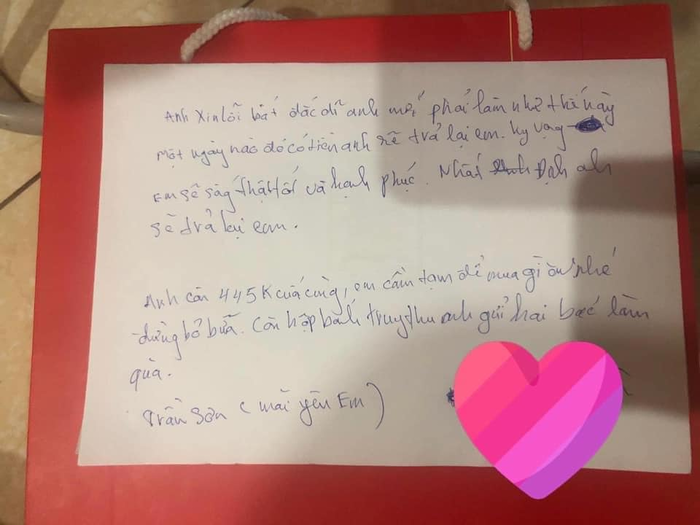 Anh xin lỗi bất đắc dĩ anh mới phải làm như thế này
một ngày nào đó có tiền anh sẽ trả lại em. hy vọng
Em sẽ sống thật tốt và hạnh phúc. Nhất định anh
sẽ trả lại em.
Anh còn 445K cuối cùng, em cầm tạm để mua gì ăn nhé
đừng bỏ bữa. Còn hộp bánh trung thu anh gửi hai bác làm
quà.
Trần Sơn (mãi yêu Em)